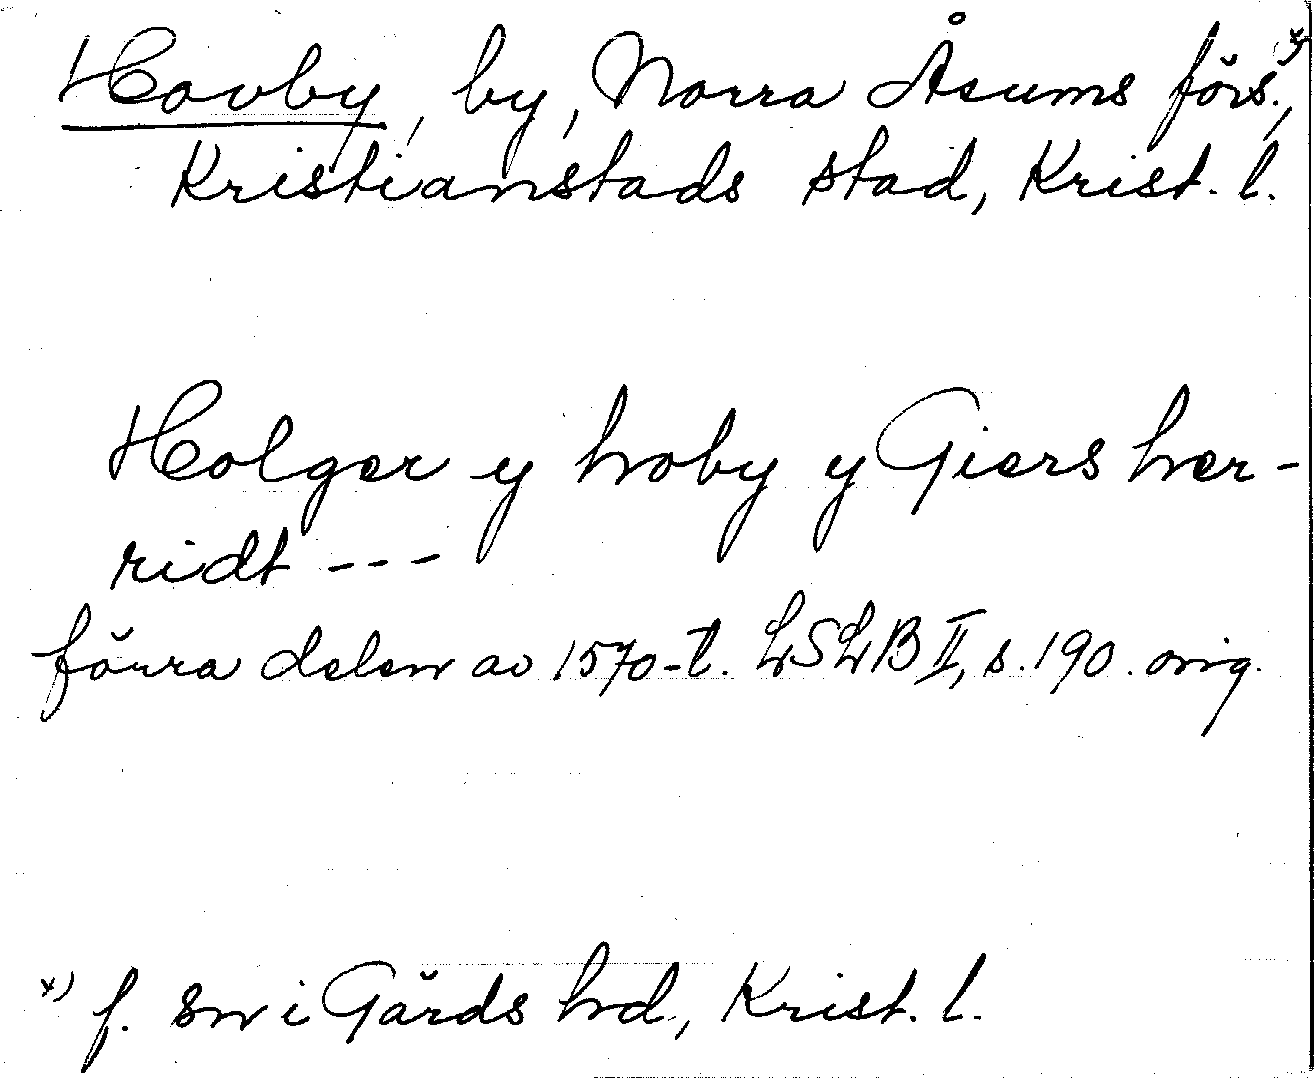 Hovby, by, Norra Åsums förs.x),
Kristianstads stad, Krist. l.
Holger y hoby y Giers her-
ridt ---
förra delen av 1570-t. LSLB II, s. 190. orig.
x) f. sn i Gärds hd, Krist. l.